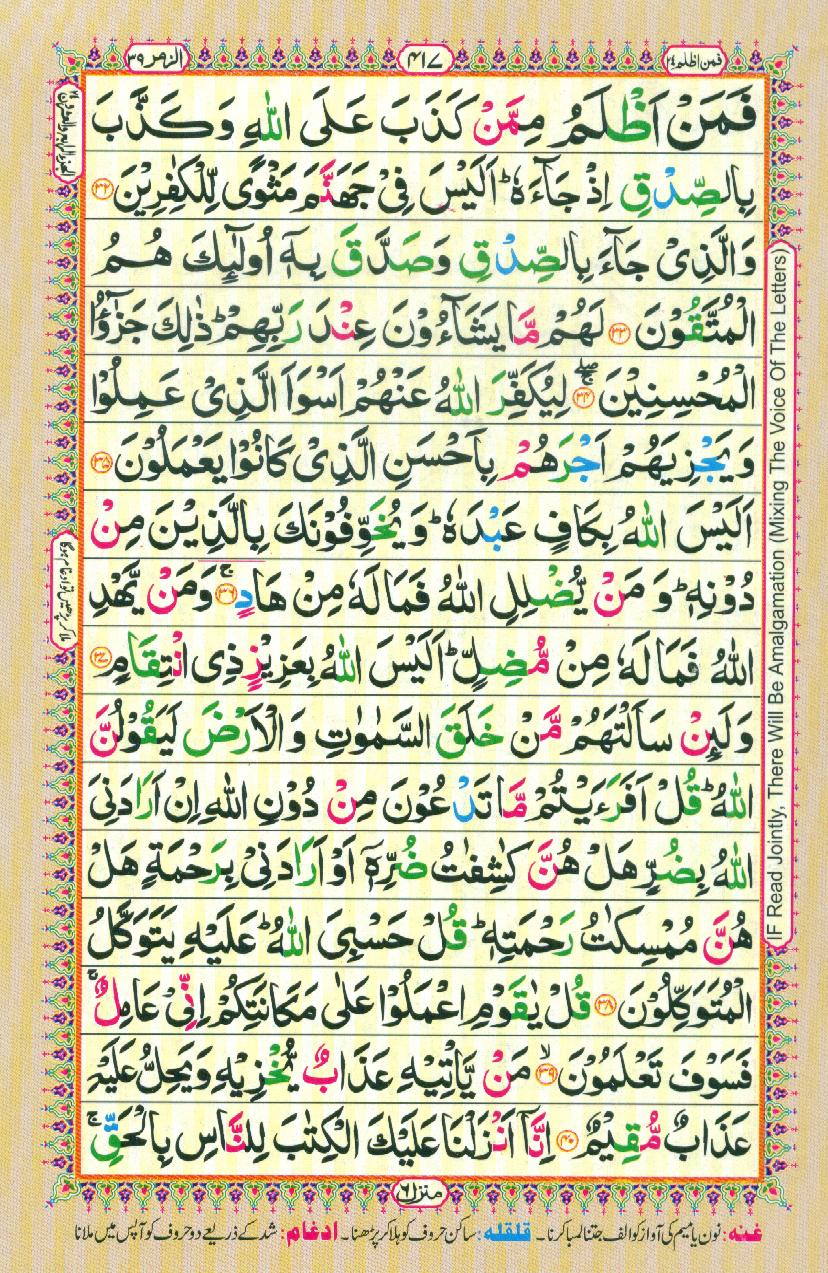 فمن اظلم ٢٤
٤١٧
الزمر ٣٩
فَمَنْ اَظْلَمُ مِمَّنْ كَذَبَ عَلَى اللّٰهِ وَ كَذَّبَ
بِالصِّدْقِ اِذْ جَآءَهٗ ؕ اَلَيْسَ فِيْ جَهَنَّمَ مَثْوًى لِّلْكٰفِرِيْنَ ﴿۳۲﴾
وَالَّذِيْ جَآءَ بِالصِّدْقِ وَصَدَّقَ بِهٖۤ اُولٰٓئِكَ هُمُ
الْمُتَّقُوْنَ ﴿۳۳﴾ لَهُمْ مَّا يَشَآءُوْنَ عِنْدَ رَبِّهِمْ ؕ ذٰلِكَ جَزٰٓؤُا
الْمُحْسِنِيْنَ ﴿۳۴﴾ لِيُكَفِّرَ اللّٰهُ عَنْهُمْ اَسْوَاَ الَّذِيْ عَمِلُوْا
وَيَجْزِيَهُمْ اَجْرَهُمْ بِاَحْسَنِ الَّذِيْ كَانُوْا يَعْمَلُوْنَ ﴿۳۵﴾
اَلَيْسَ اللّٰهُ بِكَافٍ عَبْدَهٗ ؕ وَيُخَوِّفُوْنَكَ بِالَّذِيْنَ مِنْ
دُوْنِهٖ ؕ وَ مَنْ يُّضْلِلِ اللّٰهُ فَمَا لَهٗ مِنْ هَادٍ ﴿۳۶﴾ۚ وَمَنْ يَّهْدِ
اللّٰهُ فَمَا لَهٗ مِنْ مُّضِلٍّ ؕ اَلَيْسَ اللّٰهُ بِعَزِيْزٍ ذِي انْتِقَامٍ ﴿۳۷﴾
وَلَئِنْ سَاَلْتَهُمْ مَّنْ خَلَقَ السَّمٰوٰتِ وَالْاَرْضَ لَيَقُوْلُنَّ
اللّٰهُ ؕ قُلْ اَفَرَءَيْتُمْ مَّا تَدْعُوْنَ مِنْ دُوْنِ اللّٰهِ اِنْ اَرَادَنِيَ
اللّٰهُ بِضُرٍّ هَلْ هُنَّ كٰشِفٰتُ ضُرِّهٖۤ اَوْ اَرَادَنِيْ بِرَحْمَةٍ هَلْ
هُنَّ مُمْسِكٰتُ رَحْمَتِهٖ ؕ قُلْ حَسْبِيَ اللّٰهُ ؕ عَلَيْهِ يَتَوَكَّلُ
الْمُتَوَكِّلُوْنَ ﴿۳۸﴾ قُلْ يٰقَوْمِ اعْمَلُوْا عَلٰى مَكَانَتِكُمْ اِنِّيْ عَامِلٌ ۚ
فَسَوْفَ تَعْلَمُوْنَ ﴿۳۹﴾ۙ مَنْ يَّاْتِيْهِ عَذَابٌ يُّخْزِيْهِ وَيَحِلُّ عَلَيْهِ
عَذَابٌ مُّقِيْمٌ ﴿۴۰﴾ اِنَّاۤ اَنْزَلْنَا عَلَيْكَ الْكِتٰبَ لِلنَّاسِ بِالْحَقِّ ۚ
IF Read Jointly, There Will Be Amalgamation (Mixing The Voice Of The Letters)
منزل ٦
غنه: نون یا میم کی آواز کو الف جتنا لمبا کرنا۔ قلقله: ساکن حروف کو ہلا کر پڑھنا۔ ادغام: شد کے ذریعے دو حروف کو آپس میں ملانا